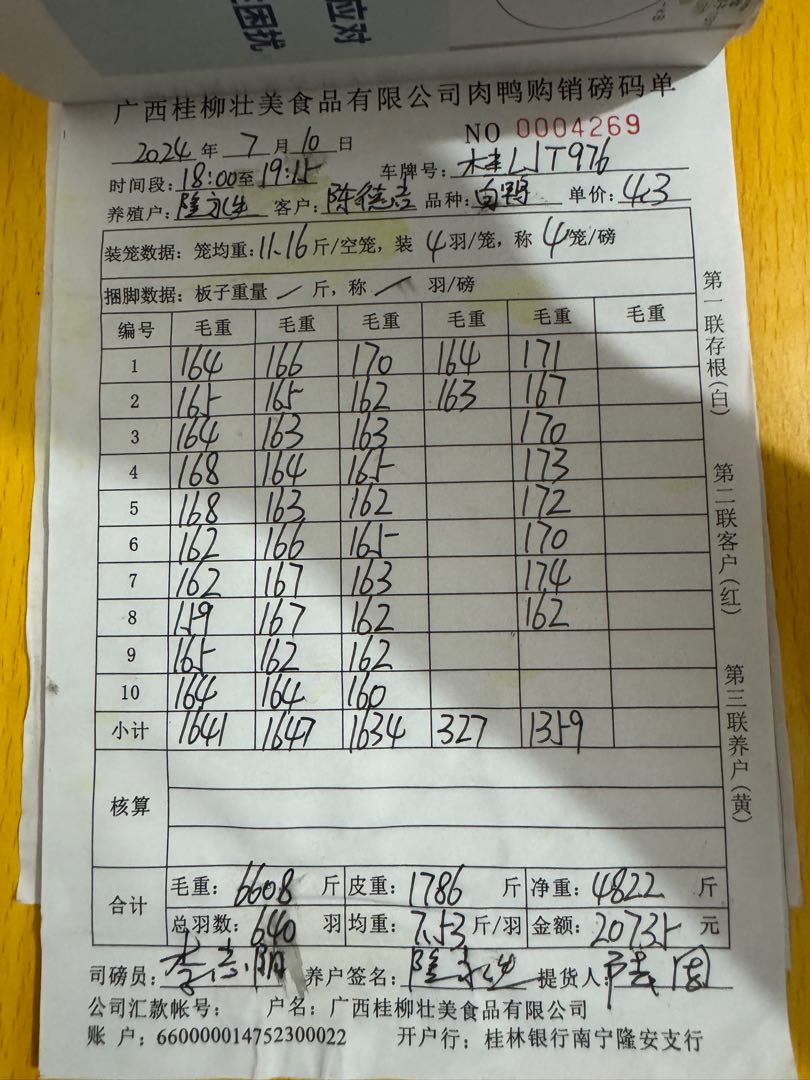 应对
困扰
广西桂柳壮美食品有限公司肉鸭购销磅码单
2024 年 7 月 10 日 NO 0004269
时间段: 18:00至19:15 车牌号: 桂LJT976
养殖户: 隆永 客户: 陈德吉 品种: 白鸭 单价: 4.3
装笼数据: 笼均重: 11.16 斤/空笼, 装 4 羽/笼, 称 4 笼/磅
捆脚数据: 板子重量 / 斤, 称 / 羽/磅
编号 毛重 毛重 毛重 毛重 毛重 毛重
1 164 166 170 164 171
2 165 165 162 163 167
3 164 163 163 170
4 168 164 165 173
5 168 163 162 172
6 162 166 165 170
7 162 167 163 174
8 159 167 162 162
9 165 162 162
10 164 164 160
小计 1641 1647 1634 327 1359
核算
合计 毛重: 6608 斤 皮重: 1786 斤 净重: 4822 斤
总羽数: 640 羽 均重: 7.53 斤/羽 金额: 20735 元
司磅员: 李 养户签名: 隆永 提货人:
公司汇款帐号: 户名: 广西桂柳壮美食品有限公司
账 户: 660000014752300022 开户行: 桂林银行南宁隆安支行
第一联存根(白)
第二联客户(红)
第三联养户(黄)